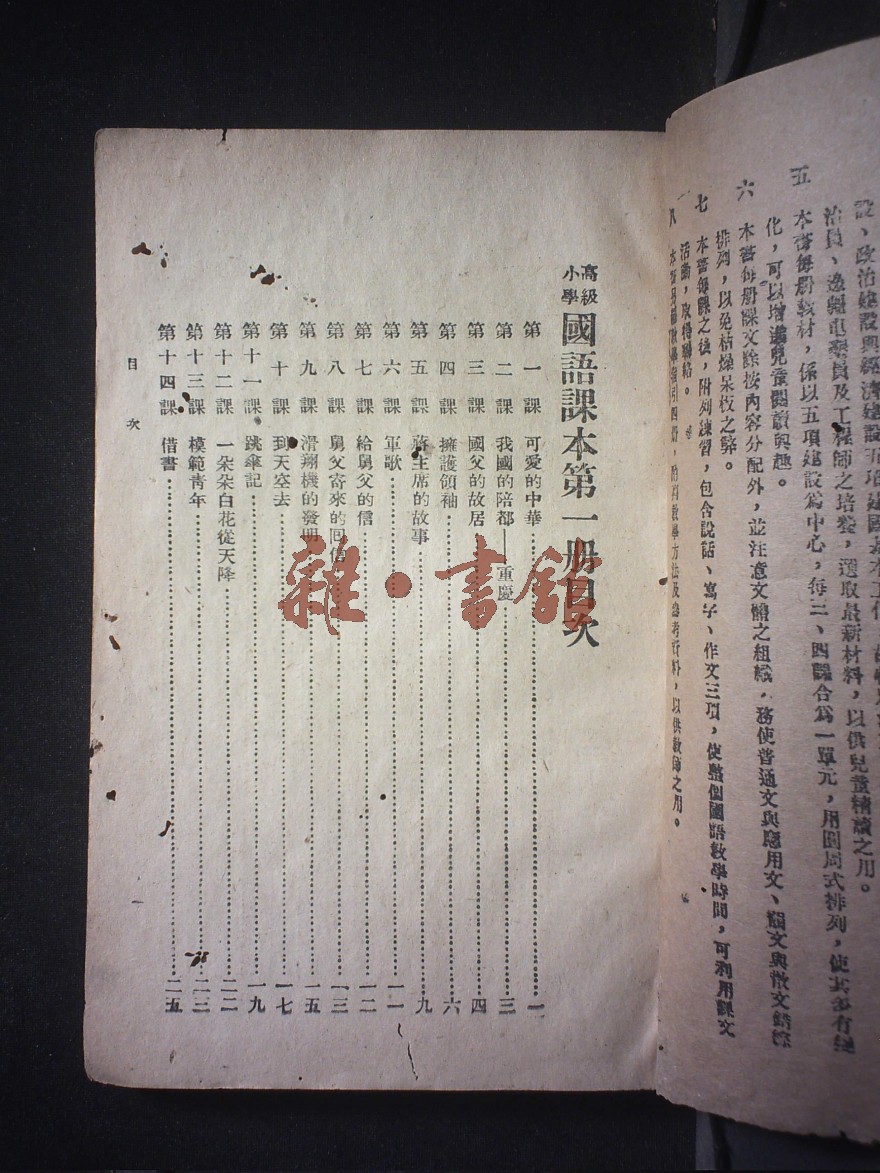 設、政治建設與經濟建設五項建國基本工作，
治員、邊疆屯墾員及工程師之培養，選取最新材料，以供兒童精讀之用。
五　本書每册教材，係以五項建設爲中心，每三、四課合爲一單元，用圓周式排列，使其多有變
化，可以增進兒童閱讀興趣。
六　本書每册課文除按內容分配外，並注意文體之組織，務使普通文與應用文、韻文與散文錯綜
排列，以免枯燥呆板之弊。
七　本書每課之後，附列練習，包含說話、寫字、作文三項，使整個國語教學時間，可利用課文
活動，取得聯絡。
八　本書另編教學指引四册，附商教學方法及參考資料，以供教師之用。
高級小學 國語課本第一册目次
第一課　可愛的中華……一
第二課　我國的陪都——重慶……三
第三課　國父的故居……四
第四課　擁護領袖……六
第五課　蔣主席的故事……九
第六課　軍歌……一一
第七課　給舅父的信……一二
第八課　舅父寄來的回信……一三
第九課　滑翔機的發明……一五
第十課　到天空去……一七
第十一課　跳傘記……一九
第十二課　一朵朵白花從天降……二二
第十三課　模範青年……二三
第十四課　借書……二五
目次　一
雜·書館